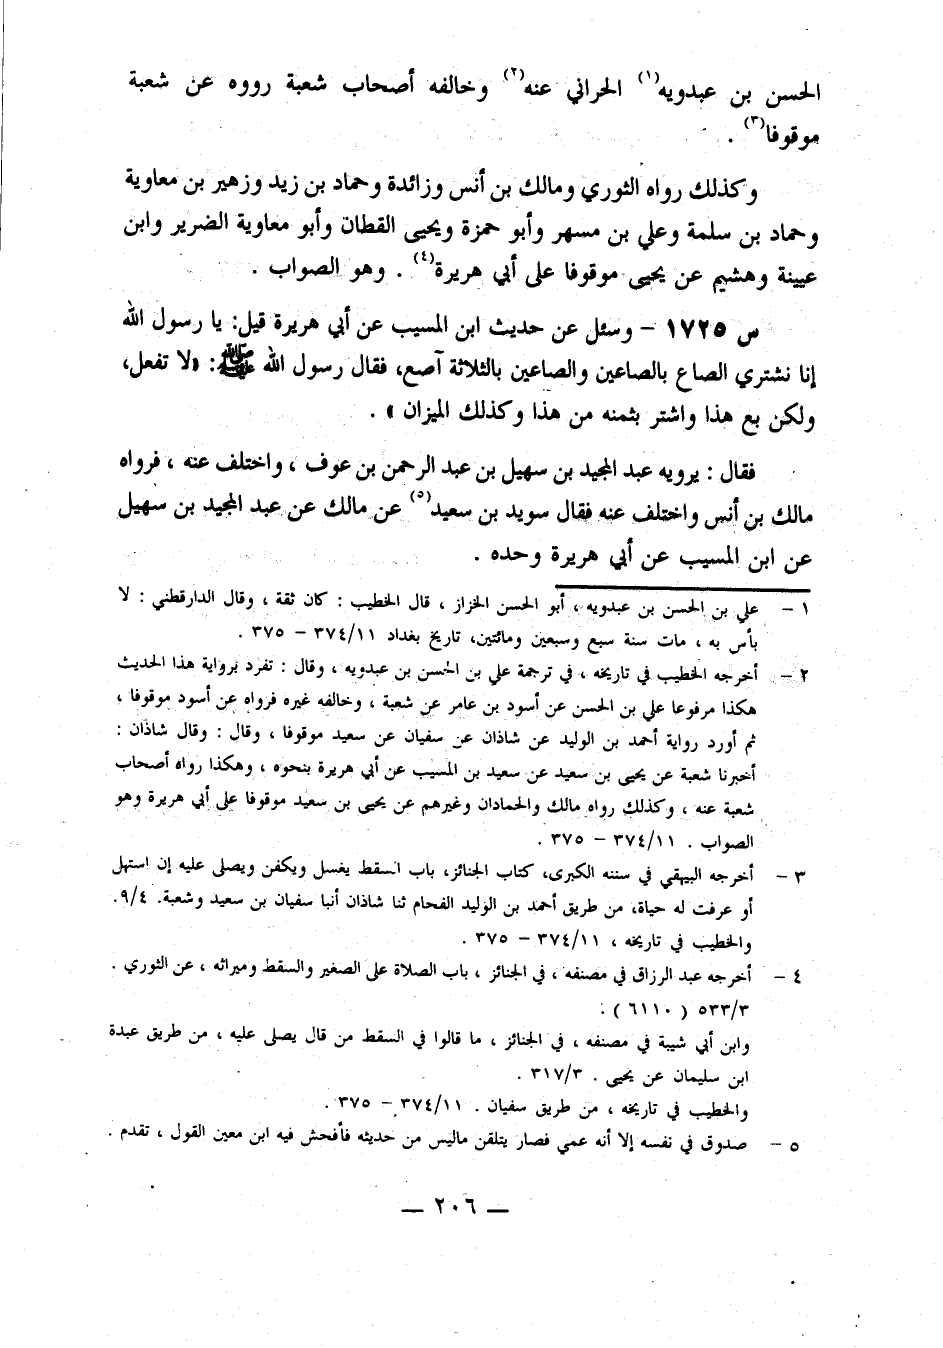 الحسن بن عبدويه(١) الحراني عنه(٢) وخالفه أصحاب شعبة رووه عن شعبة
موقوفا(٣) .
وكذلك رواه الثوري ومالك بن أنس وزائدة وحماد بن زيد وزهير بن معاوية
وحماد بن سلمة وعلي بن مسهر وأبو حمزة ويحيى القطان وأبو معاوية الضرير وابن
عيينة وهشيم عن يحيى موقوفا على أبي هريرة(٤) . وهو الصواب .
س ١٧٢٥ – وسئل عن حديث ابن المسيب عن أبي هريرة قيل: يا رسول الله
إنا نشتري الصاع بالصاعين والصاعين بالثلاثة آصع، فقال رسول الله ﷺ: «لا تفعل،
ولكن بع هذا واشتر بثمنه من هذا وكذلك الميزان » .
فقال : يرويه عبد المجيد بن سهيل بن عبد الرحمن بن عوف ، واختلف عنه ، فرواه
مالك بن أنس واختلف عنه فقال سويد بن سعيد(٥) عن مالك عن عبد المجيد بن سهيل
عن ابن المسيب عن أبي هريرة وحده .
١ – علي بن الحسن بن عبدويه ، أبو الحسن الخزاز ، قال الخطيب : كان ثقة ، وقال الدارقطني : لا
بأس به ، مات سنة سبع وسبعين ومائتين، تاريخ بغداد ٣٧٤/١١ – ٣٧٥ .
٢ – أخرجه الخطيب في تاريخه ، في ترجمة علي بن الحسن بن عبدويه ، وقال : تفرد برواية هذا الحديث
هكذا مرفوعا علي بن الحسن عن أسود بن عامر عن شعبة ، وخالفه غيره فرواه عن أسود موقوفا ،
ثم أورد رواية أحمد بن الوليد عن شاذان عن سفيان عن سعيد موقوفا ، وقال : وقال شاذان :
أخبرنا شعبة عن يحيى بن سعيد عن سعيد بن المسيب عن أبي هريرة بنحوه ، وهكذا رواه أصحاب
شعبة عنه ، وكذلك رواه مالك والحمادان وغيرهم عن يحيى بن سعيد موقوفا على أبي هريرة وهو
الصواب . ٣٧٤/١١ – ٣٧٥ .
٣ – أخرجه البيهقي في سننه الكبرى، كتاب الجنائز، باب السقط يغسل ويكفن ويصلى عليه إن استهل
أو عرفت له حياة، من طريق أحمد بن الوليد الفحام ثنا شاذان أنبا سفيان بن سعيد وشعبة. ٩/٤.
والخطيب في تاريخه ، ٣٧٤/١١ – ٣٧٥ .
٤ – أخرجه عبد الرزاق في مصنفه ، في الجنائز ، باب الصلاة على الصغير والسقط وميراثه ، عن الثوري .
٥٣٣/٣ ( ٦١١٠ ) .
وابن أبي شيبة في مصنفه ، في الجنائز ، ما قالوا في السقط من قال يصلى عليه ، من طريق عبدة
ابن سليمان عن يحيى . ٣١٧/٣ .
والخطيب في تاريخه ، من طريق سفيان . ٣٧٤/١١ – ٣٧٥ .
٥ – صدوق في نفسه إلا أنه عمي فصار يتلقن ماليس من حديثه فأفحش فيه ابن معين القول ، تقدم .
— ٢٠٦ —